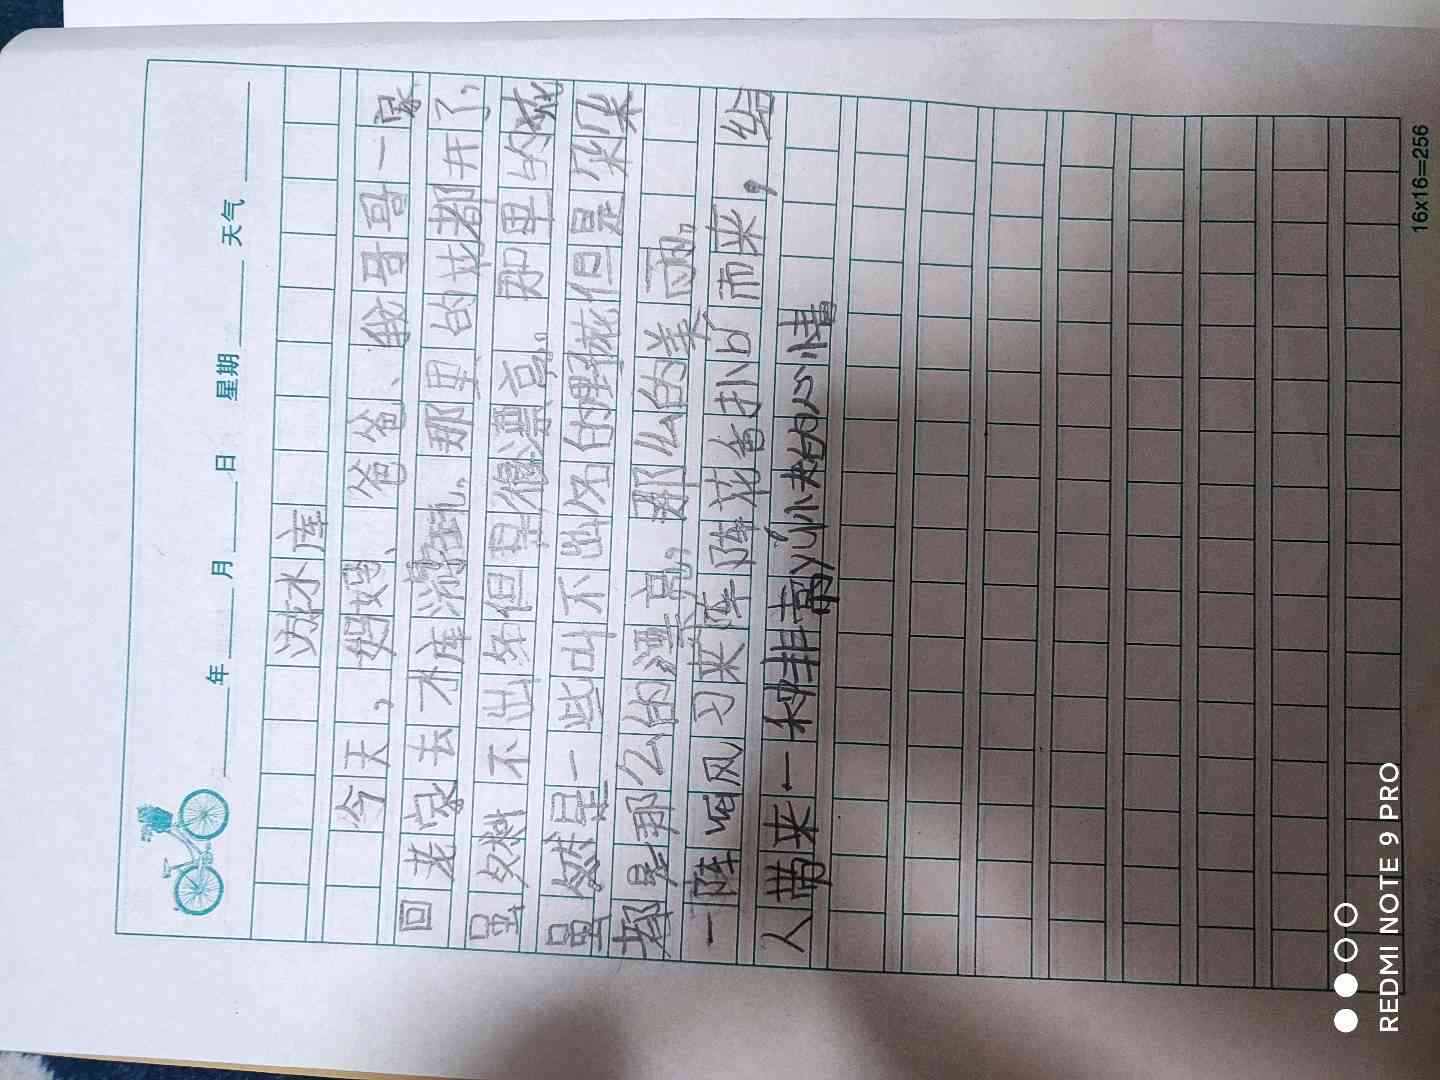 年 月 日 星期 天气
游水库
今天，妈妈、爸爸、我哥哥一家
回老家去水库游玩。那里的花都开了，
虽然不出名但是很漂亮。那里的花
虽然是一些叫不出名的野花但是朵朵
都是那么的漂亮，那么的美丽。
一阵晒风习来阵阵花香扑bí而来，给
人带来一种非常yú快的心情
16x16=256
REDMI NOTE 9 PRO